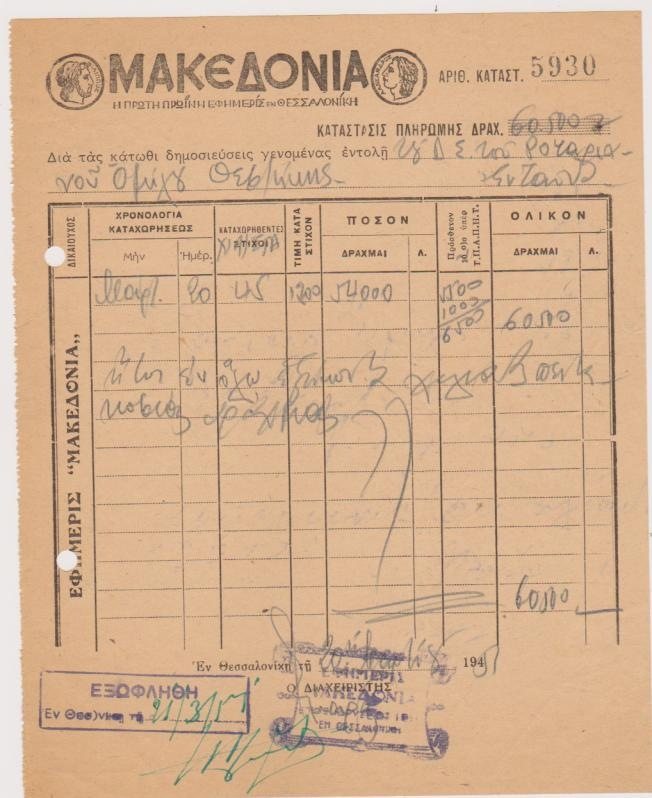 ΜΑΚΕΔΟΝΙΑ
Η ΠΡΩΤΗ ΠΡΩΪΝΗ ΕΦΗΜΕΡΙΣ ΕΝ ΘΕΣΣΑΛΟΝΙΚΗ
ΑΡΙΘ. ΚΑΤΑΣΤ. 5930
ΚΑΤΑΣΤΑΣΙΣ ΠΛΗΡΩΜΗΣ ΔΡΑΧ. 60500
Διὰ τὰς κάτωθι δημοσιεύσεις γενομένας ἐντολῇ τοῦ Ροταρια-
νοῦ Ὁμίλου Θεσ/νίκης Ἐνταῦθα
ΔΙΚΑΙΟΥΧΟΣ
ΧΡΟΝΟΛΟΓΙΑ ΚΑΤΑΧΩΡΗΣΕΩΣ
Μὴν
Ἡμέρ.
ΚΑΤΑΧΩΡΗΘΕΝΤΕΣ ΣΤΙΧΟΙ
ΤΙΜΗ ΚΑΤΑ ΣΤΙΧΟΝ
ΠΟΣΟΝ
ΔΡΑΧΜΑΙ
Λ.
Πρόσθετον ο)ο ὑπὲρ Τ.Π.Α.Π.Η.Τ.
ΟΛΙΚΟΝ
ΔΡΑΧΜΑΙ
Λ.
Μαρτ. 20 45 1200 54000 5500
1000
6500 60500
ἤτοι ἐν ὅλῳ ἑξήκοντα χιλιάδες πεντα-
κοσίας δραχμάς
ΕΦΗΜΕΡΙΣ "ΜΑΚΕΔΟΝΙΑ,,
60500
Ἐν Θεσσαλονίκῃ τῇ 20 Μαρτίου 1945
Ο ΔΙΑΧΕΙΡΙΣΤΗΣ
ΕΦΗΜΕΡΙΣ
ΜΑΚΕΔΟΝΙΑ
ΕΝ ΘΕΣΣΑΛΟΝΙΚΗ
ΕΞΩΦΛΗΘΗ
Ἐν Θεσ)νίκῃ τῇ 21/3/51